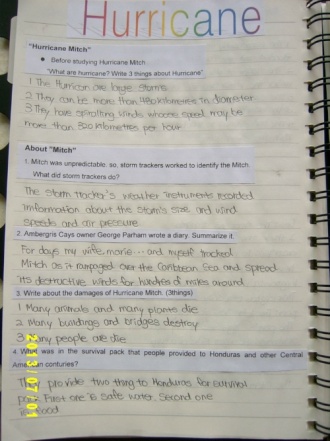 Hurricane
"Hurricane Mitch"
● Before studying Hurricane Mitch
"What are hurricane? Write 3 things about Hurricane"
1 The Hurrican are large storms
2 They can be more than 480 kilometres in diameter
3 They have spiralling winds whose speed may be
more than 320 kilometres per hour
About "Mitch"
1. Mitch was unpredictable. so, storm trackers worked to identify the Mitch.
What did storm trackers do?
The storm tracker's weather instruments recorded
imformation about the storm's size and wind
speeds and air pressure
2. Ambergris Cays owner George Parham wrote a diary. Summarize it.
For days my wife marie .. and myself tracked
Mitch as it rampaged over the Caribbean Sea and spread
its destructive winds for hundred of miles around
3. Write about the damages of Hurricane Mitch. (3things)
1 Many animals and many plants die
2 Many buildings and bridges destroy
3 Many people are die
4. What was in the survival pack that people provided to Honduras and other Central
American conturies?
They provide two thing to Honduras for survival
pack. First one is safe water. Second one
is food
2013/07/01